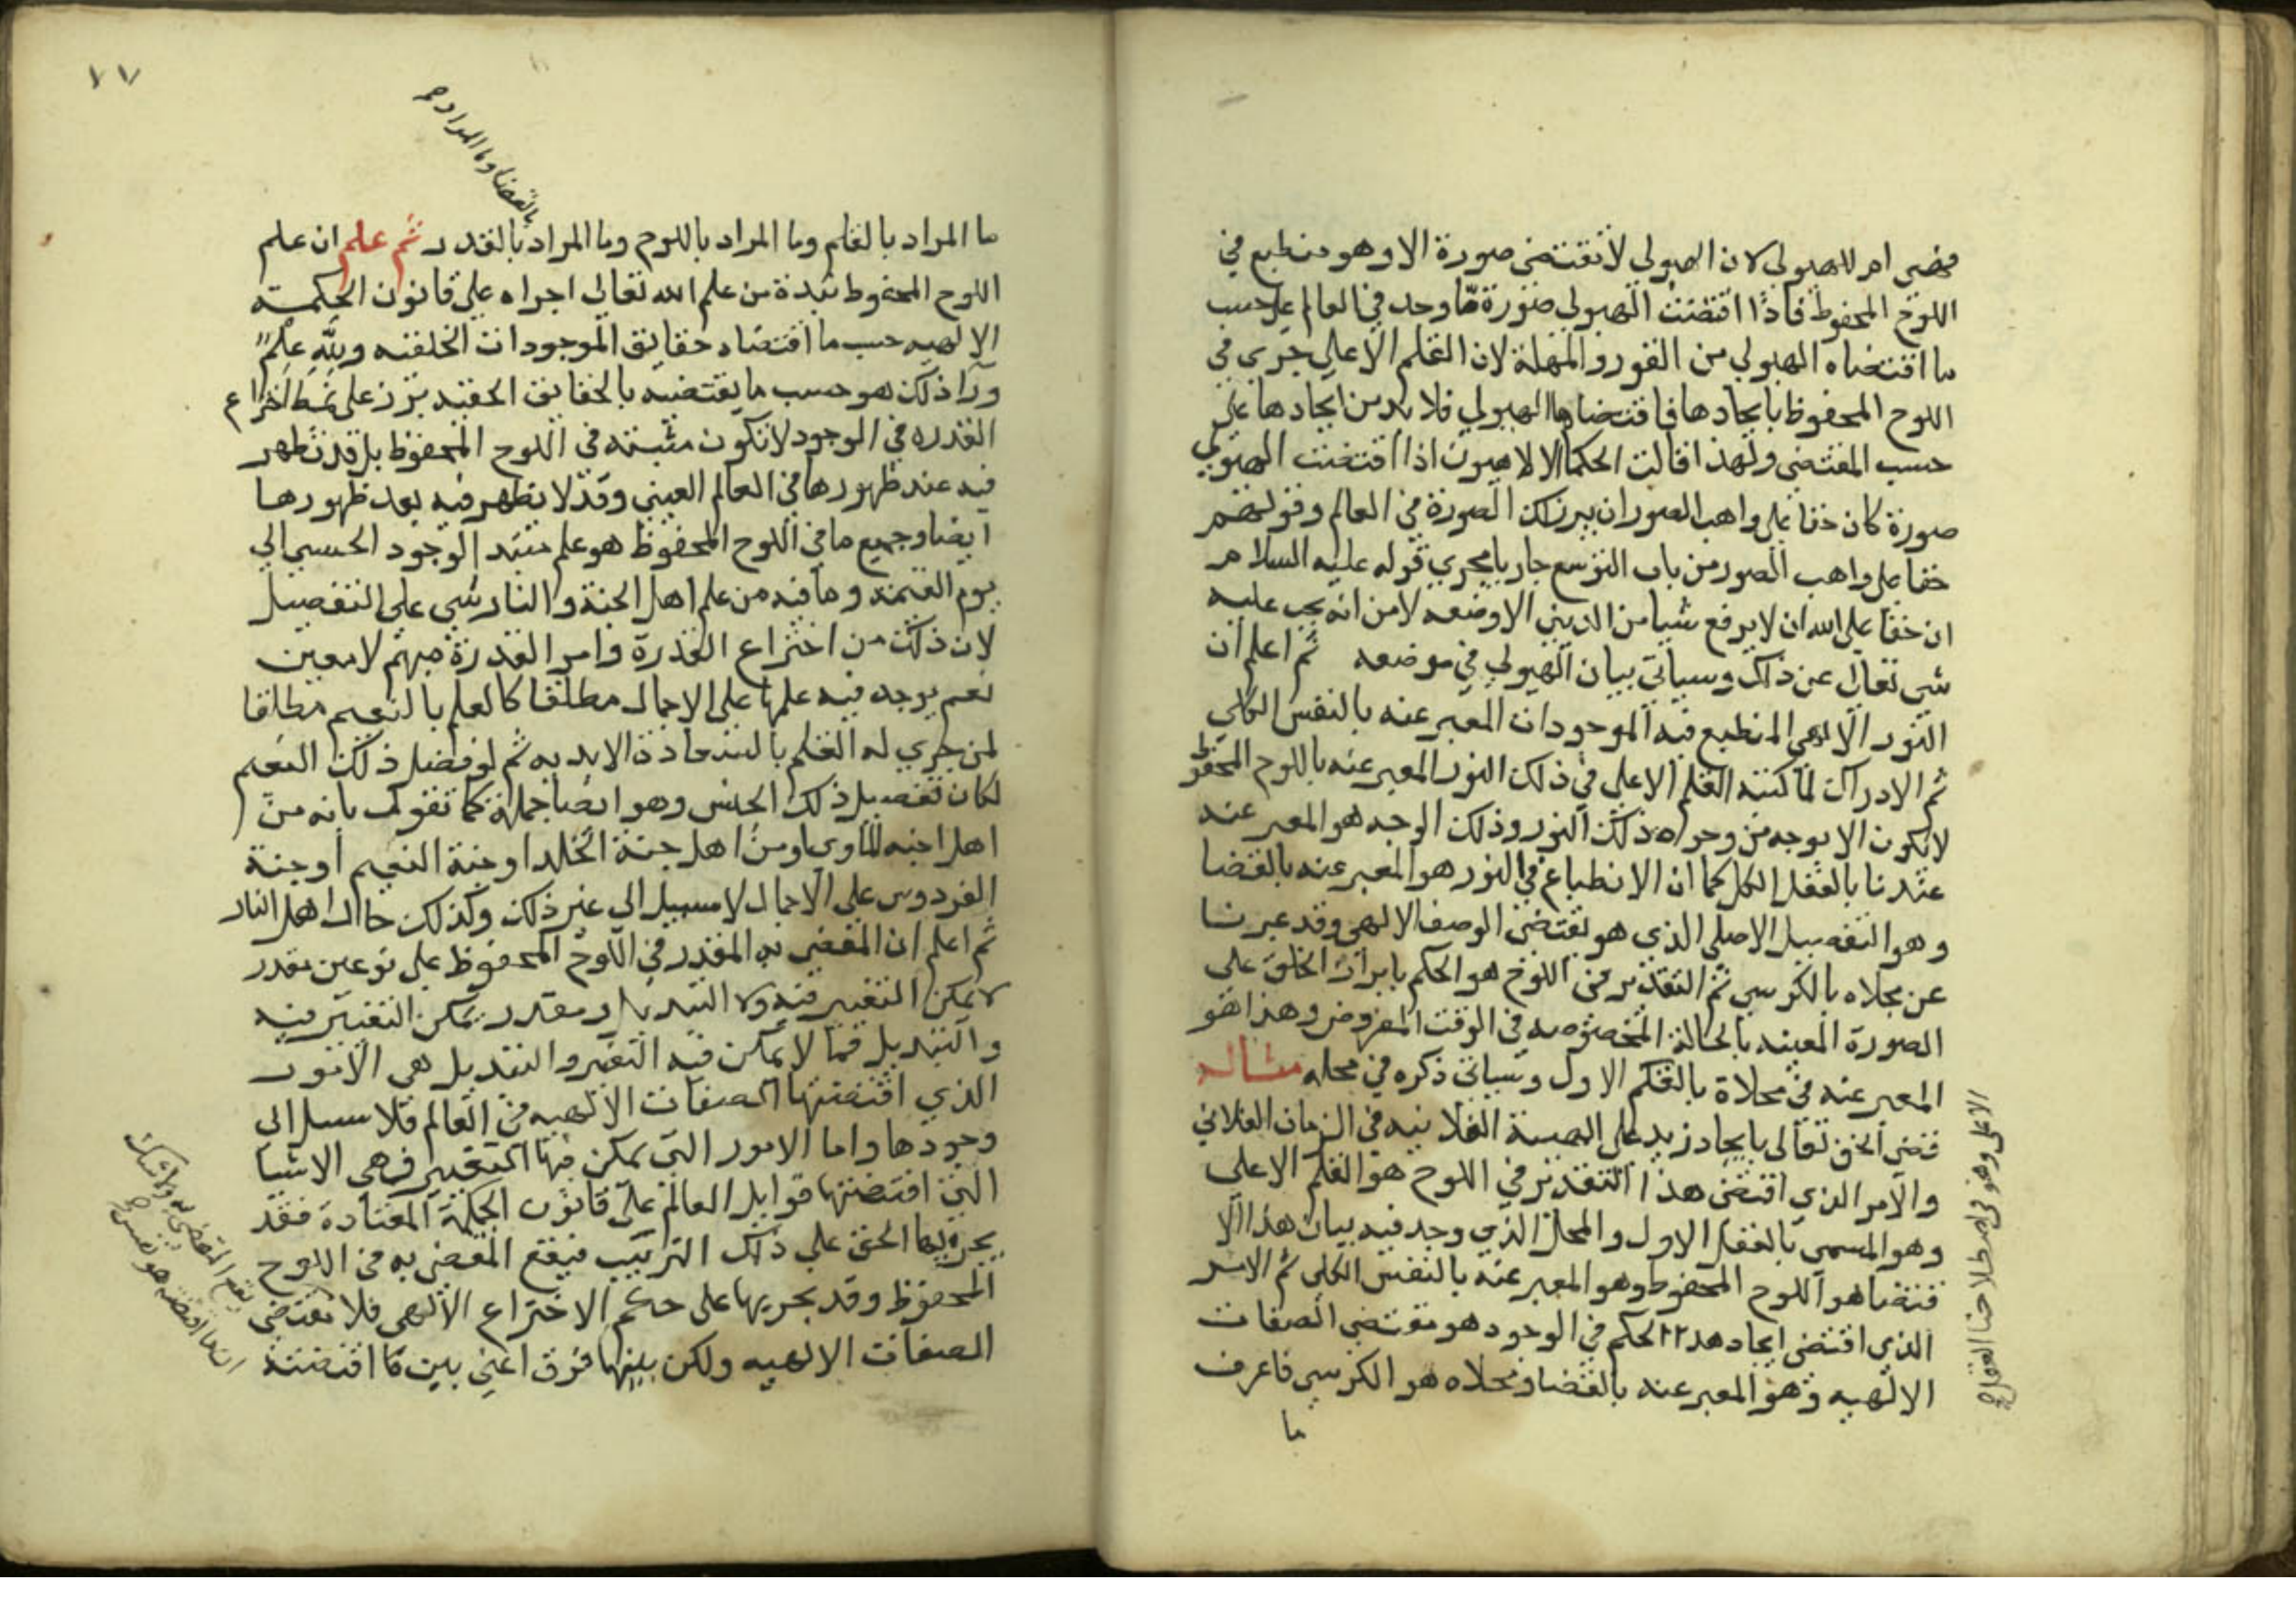 فهي ام للهيولي لان الهيولي لا تقتضي صورة الا وهو منطبع في
اللوح المحفوظ فاذا اقتضت الهيولي صورة مّا وجد في العالم على حسب
ما اقتضاه الهيولي من الفور والمهلة لان القلم الاعلى جرى في
اللوح المحفوظ بايجادها فاقتضاها الهيولي فلا بد من ايجادها على
حسب المقتضى ولهذا قالت الحكما الالاهيون اذا اقتضت الهيولي
صورة كان حقا على واهب الصور ان يبرز تلك الصورة في العالم وقولهم
حقا على واهب الصور من باب التوسع جار بامجري قوله عليه السلام
ان حقا على الله ان لا يرفع شيا من الدنيي الا وضعه لا من انه يجب عليه
شي تعالى عن ذلك وسياتي بيان الهيولي في موضعه ثم اعلم ان
النور الالهي المنطبع فيه الموجودات المعبر عنه بالنفس الكلي
ثم الادراك لما كتبه القلم الاعلى في ذلك النور المعبر عنه باللوح المحفوظ
لا يكون الا بوجه من وجوه ذلك النور وذلك الوجه هو المعبر عنه
عندنا بالعقل الكل كما ان الانطباع في النور هو المعبر عنه بالقضا
وهو التفصيل الاصلي الذي هو بمقتضى الوصف الالهي وقد عبرنا
عن مجلاه بالكرسي ثم التقدير في اللوح هو الحكم بابراز الخلق على
الصورة المعينه بالحالة المخصوصه في الوقت المفروض وهذا هو
المعبر عنه في مجلاة بالقلم الاول وسياتي ذكره في محله مثاله
قضى الحق تعالى بايجاد زيد على الهيية الفلانيه في الزمان الفلاني
والامر الذي اقتضى هذا التقدير في اللوح هو القلم الاعلى
وهو المسمى بالعقل الاول والمحل الذي وجد فيه بيان هذا الا
قتضا هو اللوح المحفوظ وهو المعبر عنه بالنفس الكلي ثم الامر
الذي اقتضى ايجاد هذا الحكم في الوجود هو مقتضى الصفات
الالهيه وهو المعبر عنه بالقضا ومجلاه هو الكرسي فاعرف
ما
٧٧
بالقضا وما المراد
ما المراد بالقلم وما المراد باللوح وما المراد بالقدر ثم علم ان علم
اللوح المحفوظ نبدة من علم الله تعالى اجراه على قانون الحكمة
الالهيه حسب ما اقتضاه حقايق الموجودات الخلقيه ولله علم
ورا ذلك هو حسب ما يقتضيه بالحقايق الحقيه برز على نمط اختراع
القدره في الوجود لا تكون مثبته في اللوح المحفوظ بل قد تظهر
فيه عند ظهورها في العالم العيني وقد لا تظهر فيه بعد ظهورها
ايضا وجميع ما في اللوح المحفوظ هو علم مبتدا الوجود الحسي الى
يوم القيمه وما فيه من علم اهل الجنة والنار شي على التفصيل
لان ذلك من اختراع القدرة وامر القدرة مبهم لا معين
نعم يوجد فيه علمها على الاجمال مطلقا كالعلم بالنعيم مطلقا
لمن جري له القلم بالسعادة الابديه ثم لو فصل ذلك النعيم
لكان تفصيل ذلك الجنس وهو ايضا جملة كما تقول بانه من
اهل جنه الماوي او من اهل جنة الخلد او جنة النعيم او جنة
الفردوس على الاجمال لا سبيل الى غير ذلك وكذلك حال اهل النار
ثم اعلم ان المقضي به المقدر في اللوح المحفوظ على نوعين مقدر
لا يمكن التغيير فيه ولا التبديل ومقدر يمكن التغيير فيه
والتبديل فما لا يمكن فيه التغير والتبديل هي الامور
الذي اقتضتها الصفات الالهيه في العالم فلا سبيل الى
وجودها واما الامور التي يمكن فيها التغيير فهي الاشيا
التي اقتضتها قوابل العالم على قانون الحكمة المعتادة فقد
يجريها الحق على ذلك الترتيب فيقع المقضي به في اللوح
المحفوظ وقد يجريها على حكم الاختراع الالهي فلا
الصفات الالهيه ولكن بينهما فرق اعني بين ما اقتضته